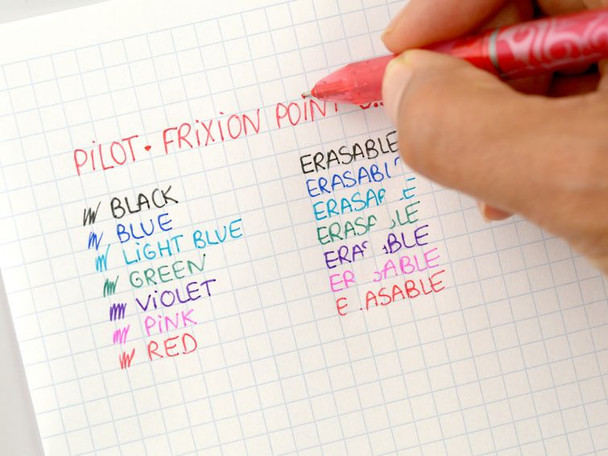 PiLOT • FRiXiON POiNT
BLACK
BLUE
LiGHT BLUE
GREEN
ViOLET
PiNK
RED
ERASABLE
ERASABL
ERASA E
ERASA LE
ERA ABLE
ER ABLE
E ASABLE